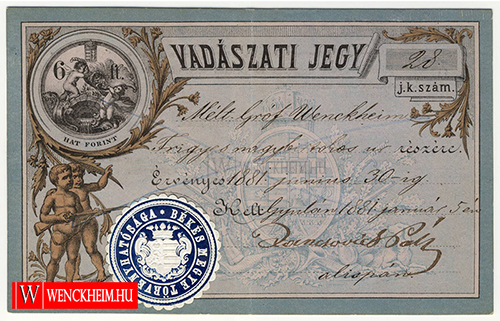 6 ft.
HAT FORINT
VADÁSZATI JEGY
28.
j.k.szám.
Mélt. Gróf Wenckheim
Frigyes megyebizottság úr részére.
Érvényes 1881 junius 30-ig.
Kelt Gyulán 1881 január 5 én
alispán
BÉKÉS MEGYE TÖRVÉNYHATÓSÁGA
WENCKHEIM.HU
W WENCKHEIM.HU